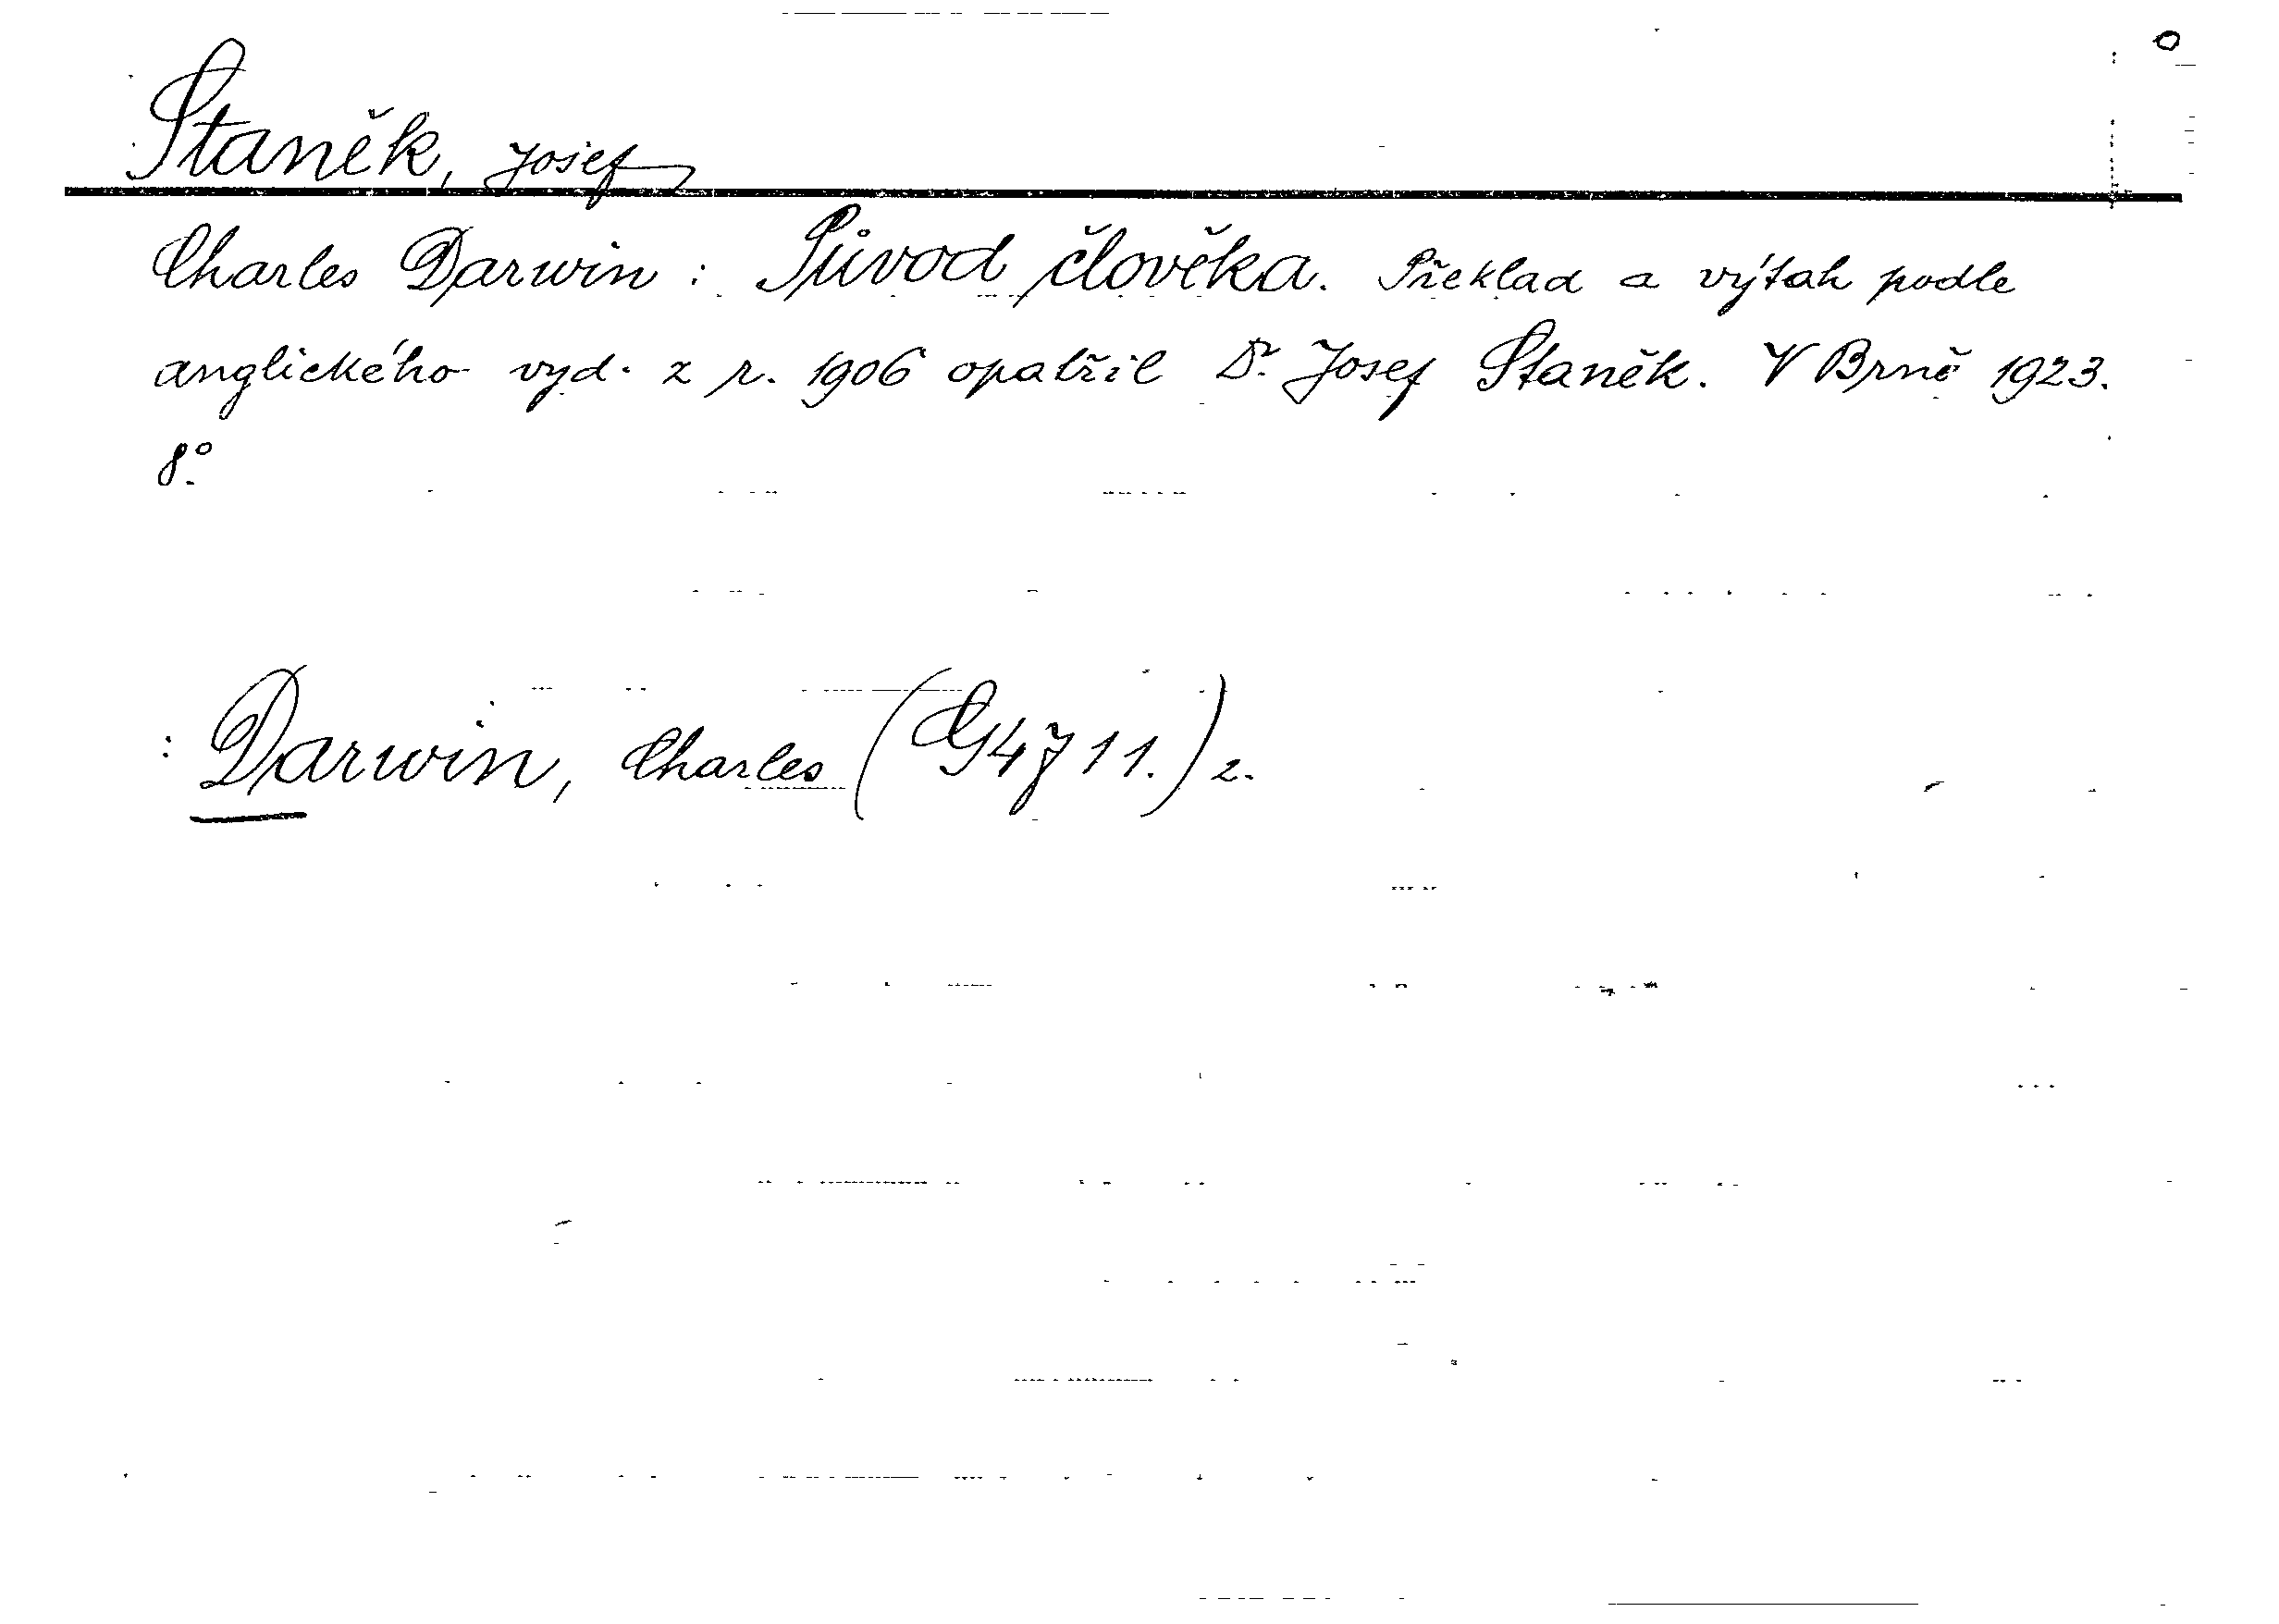 Staněk, Josef
Charles Darwin : Původ člověka. Překlad a výtah podle
anglického vyd. z r. 1906 opatřil Dr. Josef Staněk. V Brně 1923.
8°.
: Darwin, Charles